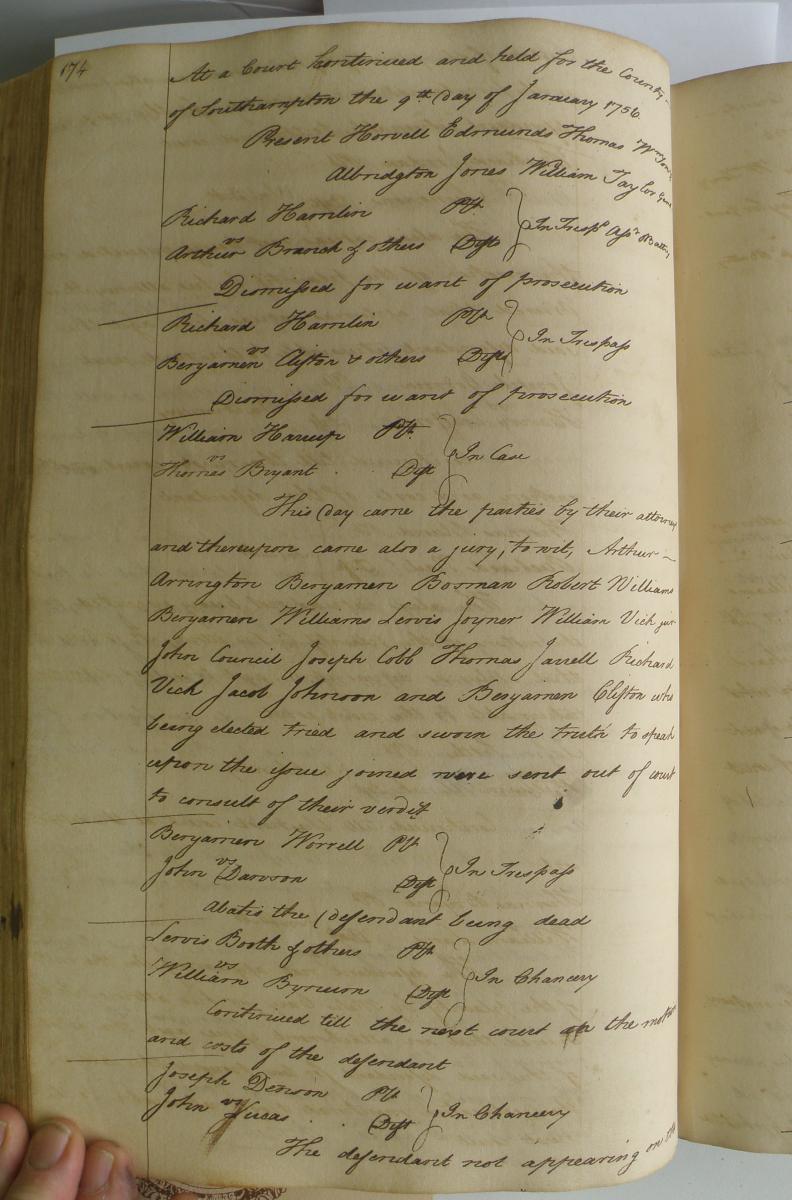 174
At a Court Continued and held for the County
of Southampton the 9th Day of January 1756.
Present Howell Edmunds Thomas Wms
Albridgton Jones William Taylor Gent
Richard Hamlin Plt
vs
Arthur Branch & others Defts
In Tresps Asst Battry
Dismissed for want of prosecution
Richard Hamlin Plt
vs
Benjamen Clifton & others Defts
In Trespass
Dismissed for want of prosecution
William Plt
vs
Thomas Bryant . Deft
In Case
This Day came the parties by their attorneys
and thereupon came also a jury, to wit, Arthur
Arrington Benjamen Bosman Robert Williams
Benjamen Williams Lewis Joyner William Vick junr
John Council Joseph Cobb Thomas Jarrell Richard
Vick Jacob Johnson and Benjamen Clifton who
being elected tried and sworn the truth to speak
upon the issue joined were sent out of court
to consult of their verdict
Benjamen Worrell Plt
vs
John Dawson Deft
In Trespass
Abatis the Defendant being dead
Lewis Booth & others Plt
vs
William Bynum Deft
In Chancery
Continued till the next court on the motion
and costs of the defendant
Joseph Denson Plt
vs
John Lucas . . Deft
In Chancery
The defendant not appearing on